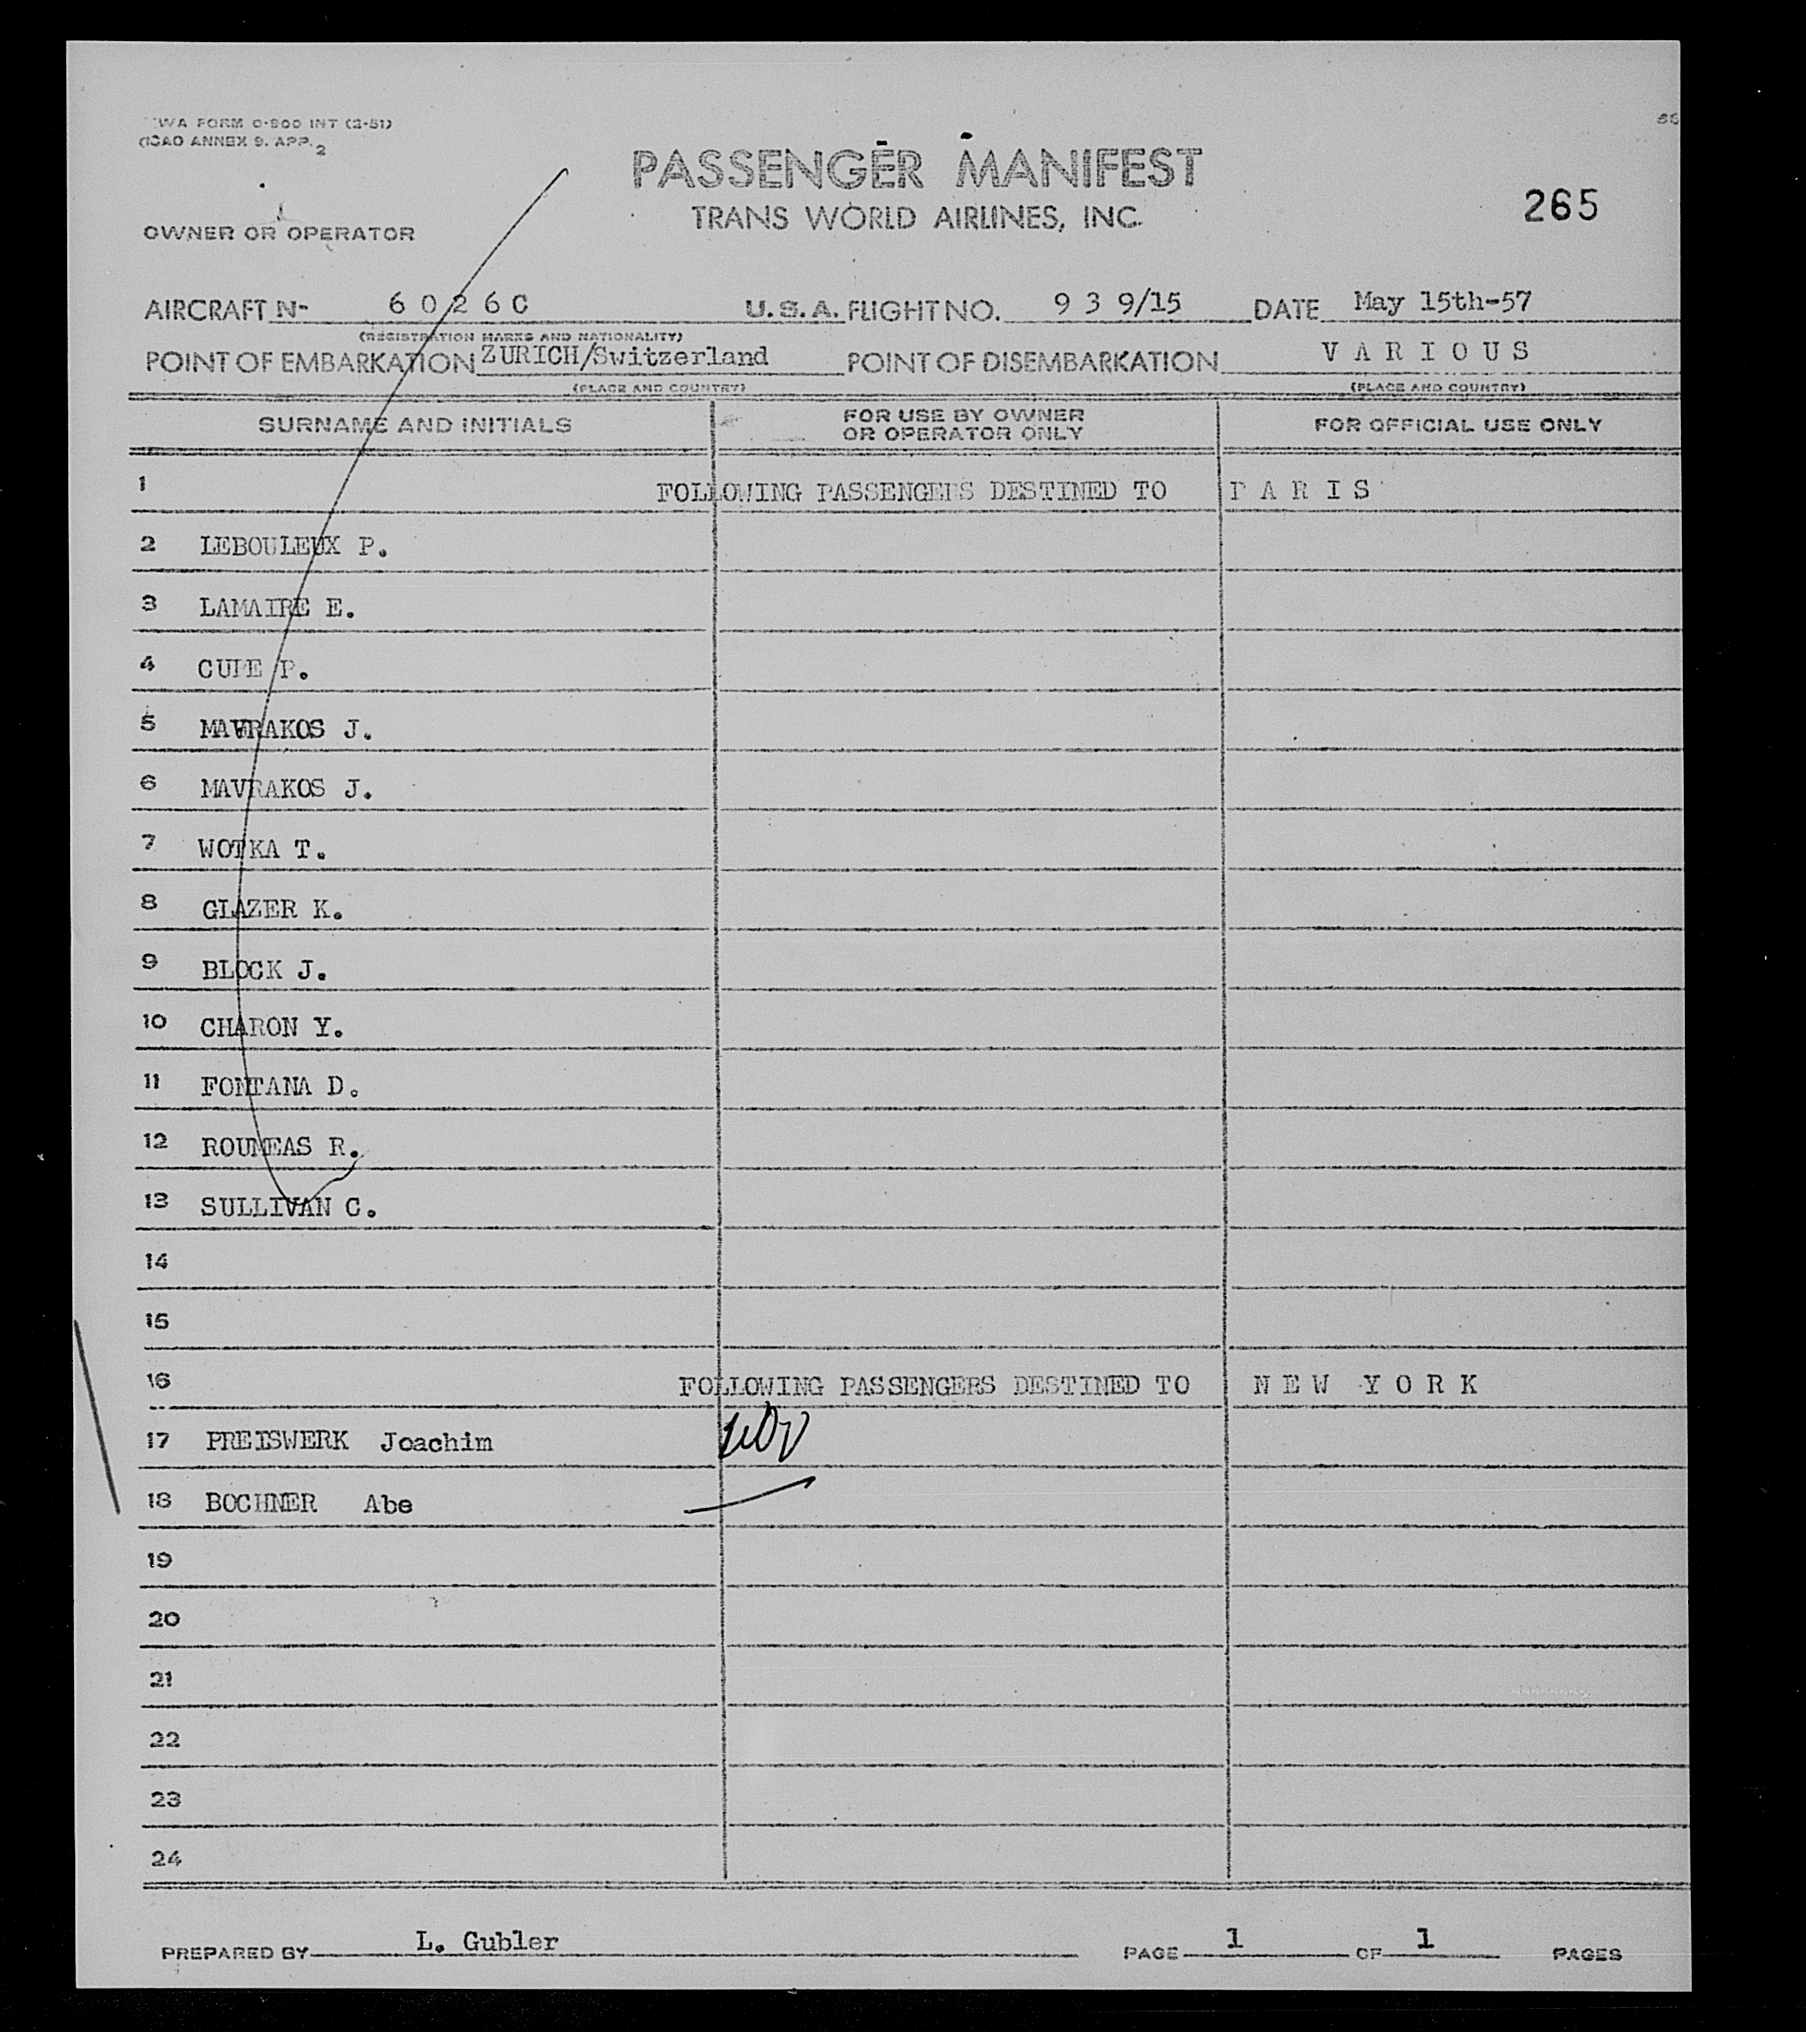 TWA FORM O-800 INT (2-51)
(ICAO ANNEX 9. APP. 2
PASSENGER MANIFEST
TRANS WORLD AIRLINES, INC.
265
OWNER OR OPERATOR
AIRCRAFT N- 6 0 2 6 C U.S.A. FLIGHT NO. 9 3 9/15 DATE May 15th-57
(REGISTRATION MARKS AND NATIONALITY)
POINT OF EMBARKATION ZURICH/Switzerland POINT OF DISEMBARKATION V A R I O U S
(PLACE AND COUNTRY) (PLACE AND COUNTRY)
SURNAME AND INITIALS FOR USE BY OWNER OR OPERATOR ONLY FOR OFFICIAL USE ONLY
1 FOLLOWING PASSENGERS DESTINED TO P A R I S
2 LEBOULEUX P.
3 LAMAIRE E.
4 P.
5 MAVRAKOS J.
6 MAVRAKOS J.
7 WOTKA T.
8 GLAZER K.
9 BLOCK J.
10 CHARON Y.
11 FONTANA D.
12 ROUMEAS R.
13 SULLIVAN C.
14
15
16 FOLLOWING PASSENGERS DESTINED TO N E W Y O R K
17 PREISWERK Joachim
18 BOCHNER Abe
19
20
21
22
23
24
PREPARED BY L. Gubler PAGE 1 OF 1 PAGES